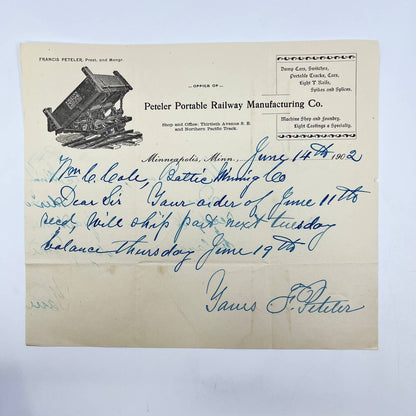 FRANCIS PETELER, Prest. and Mangr.
— OFFICE OF —
Peteler Portable Railway Manufacturing Co.
Shop and Office: Thirtieth Avenue S. E.
and Northern Pacific Track.
Dump Cars, Switches,
Portable Tracks, Cars,
Light T Rails,
Spikes and Splices.
Machine Shop and Foundry.
Light Castings a Specialty.
Minneapolis, Minn., June 14th 1902
Wm C. Cole, Baltic Mining Co
Dear Sir Your order of June 11th
recd, will ship part next tuesday
balance thursday June 19th
Yours F. Peteler